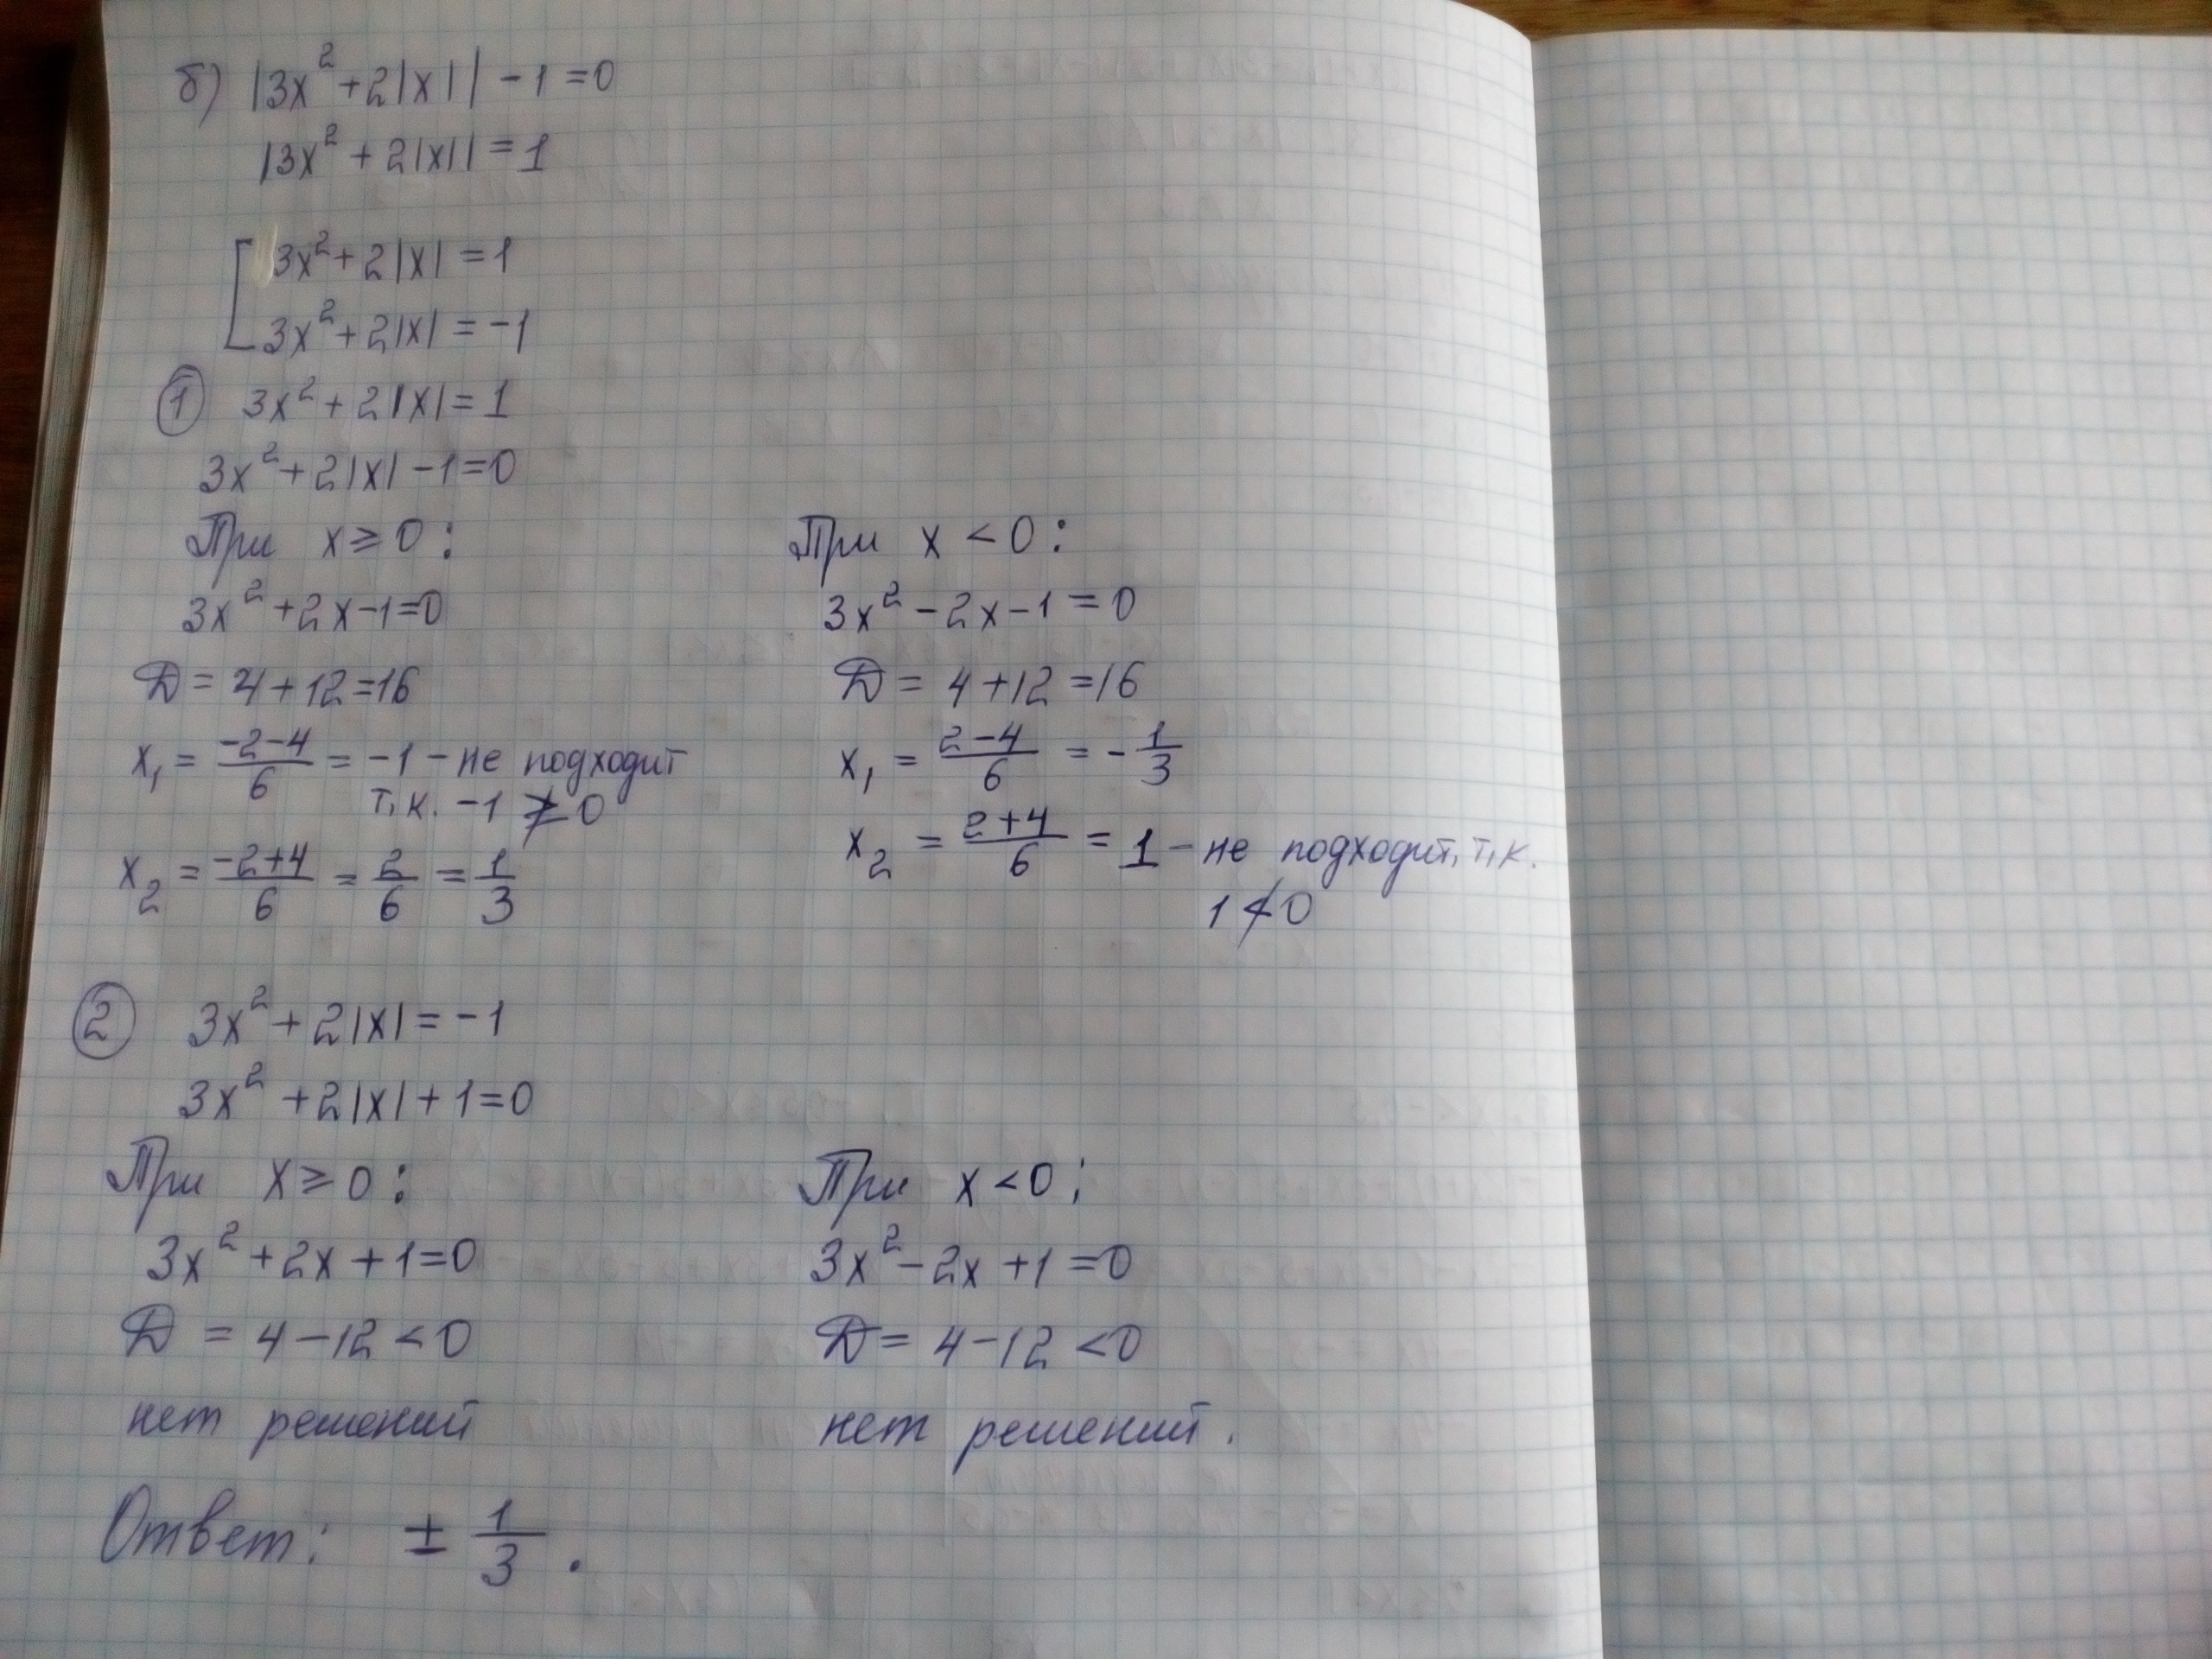 б) |3x² + 2|x|| - 1 = 0
|3x² + 2|x|| = 1
[ 3x² + 2|x| = 1
3x² + 2|x| = -1
① 3x² + 2|x| = 1
3x² + 2|x| - 1 = 0
При x ⩾ 0 :
3x² + 2x - 1 = 0
D = 4 + 12 = 16
x₁ = (-2-4)/6 = -1 - не подходит
т.к. -1 ≱ 0
x₂ = (-2+4)/6 = 2/6 = 1/3
При x < 0 :
3x² - 2x - 1 = 0
D = 4 + 12 = 16
x₁ = (2-4)/6 = -1/3
x₂ = (2+4)/6 = 1 - не подходит, т.к.
1 ≮ 0
② 3x² + 2|x| = -1
3x² + 2|x| + 1 = 0
При x ⩾ 0 :
3x² + 2x + 1 = 0
D = 4 - 12 < 0
нет решений
При x < 0 :
3x² - 2x + 1 = 0
D = 4 - 12 < 0
нет решений.
Ответ: ± 1/3.